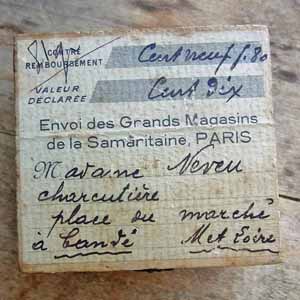 CONTRE
REMBOURSEMENT Cent neuf f. 80
VALEUR
DÉCLARÉE Cent dix
Envoi des Grands Magasins
de la Samaritaine, PARIS
Madame Neveu
charcutière
place du marché
à Candé M et Loire